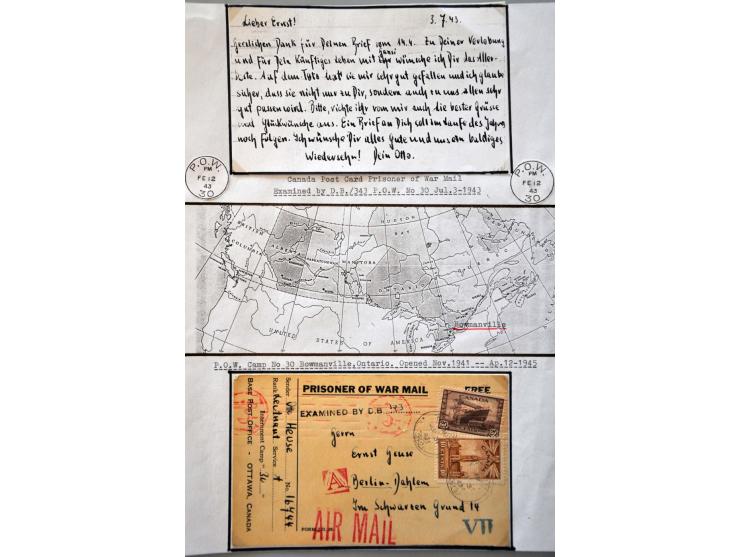 Lieber Ernst! 3.7.43.
Herzlichen Dank für Deinen Brief vom 14.4. Zu Deiner Verlobung
und für Dein künftiges Leben mit ihr wünsche ich Dir das Aller-
beste. Auf dem Foto hat sie mir sehr gut gefallen und ich glaube
sicher, dass sie nicht nur zu Dir, sondern auch zu uns allen sehr
gut passen wird. Bitte, richte ihr von mir auch die besten Grüsse
und Glückwünsche aus. Ein Brief an Dich soll im Laufe des Jahres
noch folgen. Ich wünsche Dir alles Gute und uns ein baldiges
Wiedersehn! Dein Otto.
P.O.W.
PM
FE 12
43
30
P.O.W.
PM
FE 12
43
30
Canada Post Card Prisoner of War Mail
Examined by D.B./343 P.O.W. No 30 Jul.3-1943
HUDSON
BAY
BRITISH
COLUMBIA
ALBERTA
SASKATCHEWAN
MANITOBA
ONTARIO
QUEBEC
UNITED STATES OF AMERICA
Bowmanville
P.O.W. Camp No 30 Bowmanville.Ontario. Opened Nov.1941 -- Ap.12-1945
PRISONER OF WAR MAIL FREE
EXAMINED BY D.B.
CANADA
Herrn
Ernst Geuse
Berlin-Dahlem
Im Schwarzen Grund 14
A
AIR MAIL
VII
Sender Otto Heuse
Rank Leutnant Service No 16744
Internment Camp "30"
BASE POST OFFICE - OTTAWA, CANADA